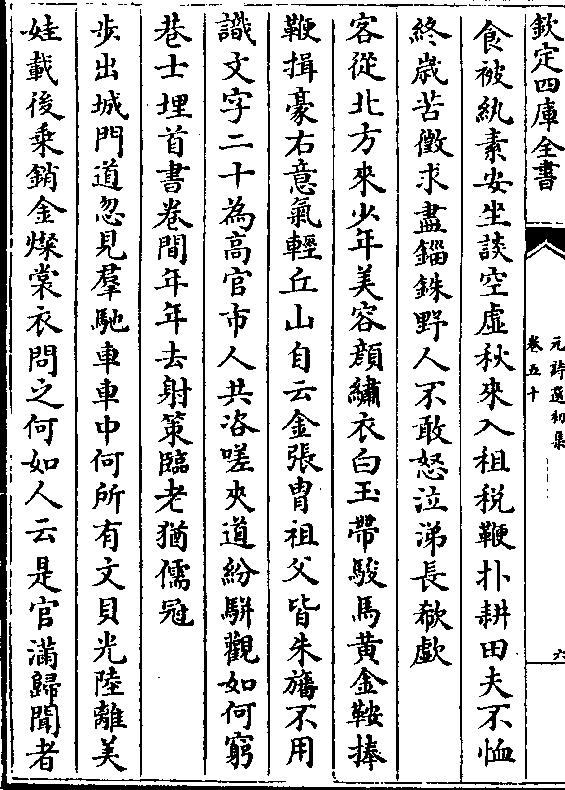 欽定四庫全書
元詩選初集
卷五十
六
食被紈素安坐談空虛秋來入租税鞭扑耕田夫不恤
終歳苦徴求盡錙銖野人不敢怒泣涕長欷歔
客從北方來少年美容顔繡衣白玉帶駿馬黃金鞍捧
鞭揖豪右意氣輕丘山自云金張胄祖父皆朱旛不用
識文字二十為高官市人共洛嗟夾道紛駢觀如何窮
巷士埋首書卷間年年去射策臨老猶儒冠
歩出城門道忽見羣馳車車中何所有文貝光陸離美
娃載後乘銷金燦裳衣問之何如人云是官滿歸聞者